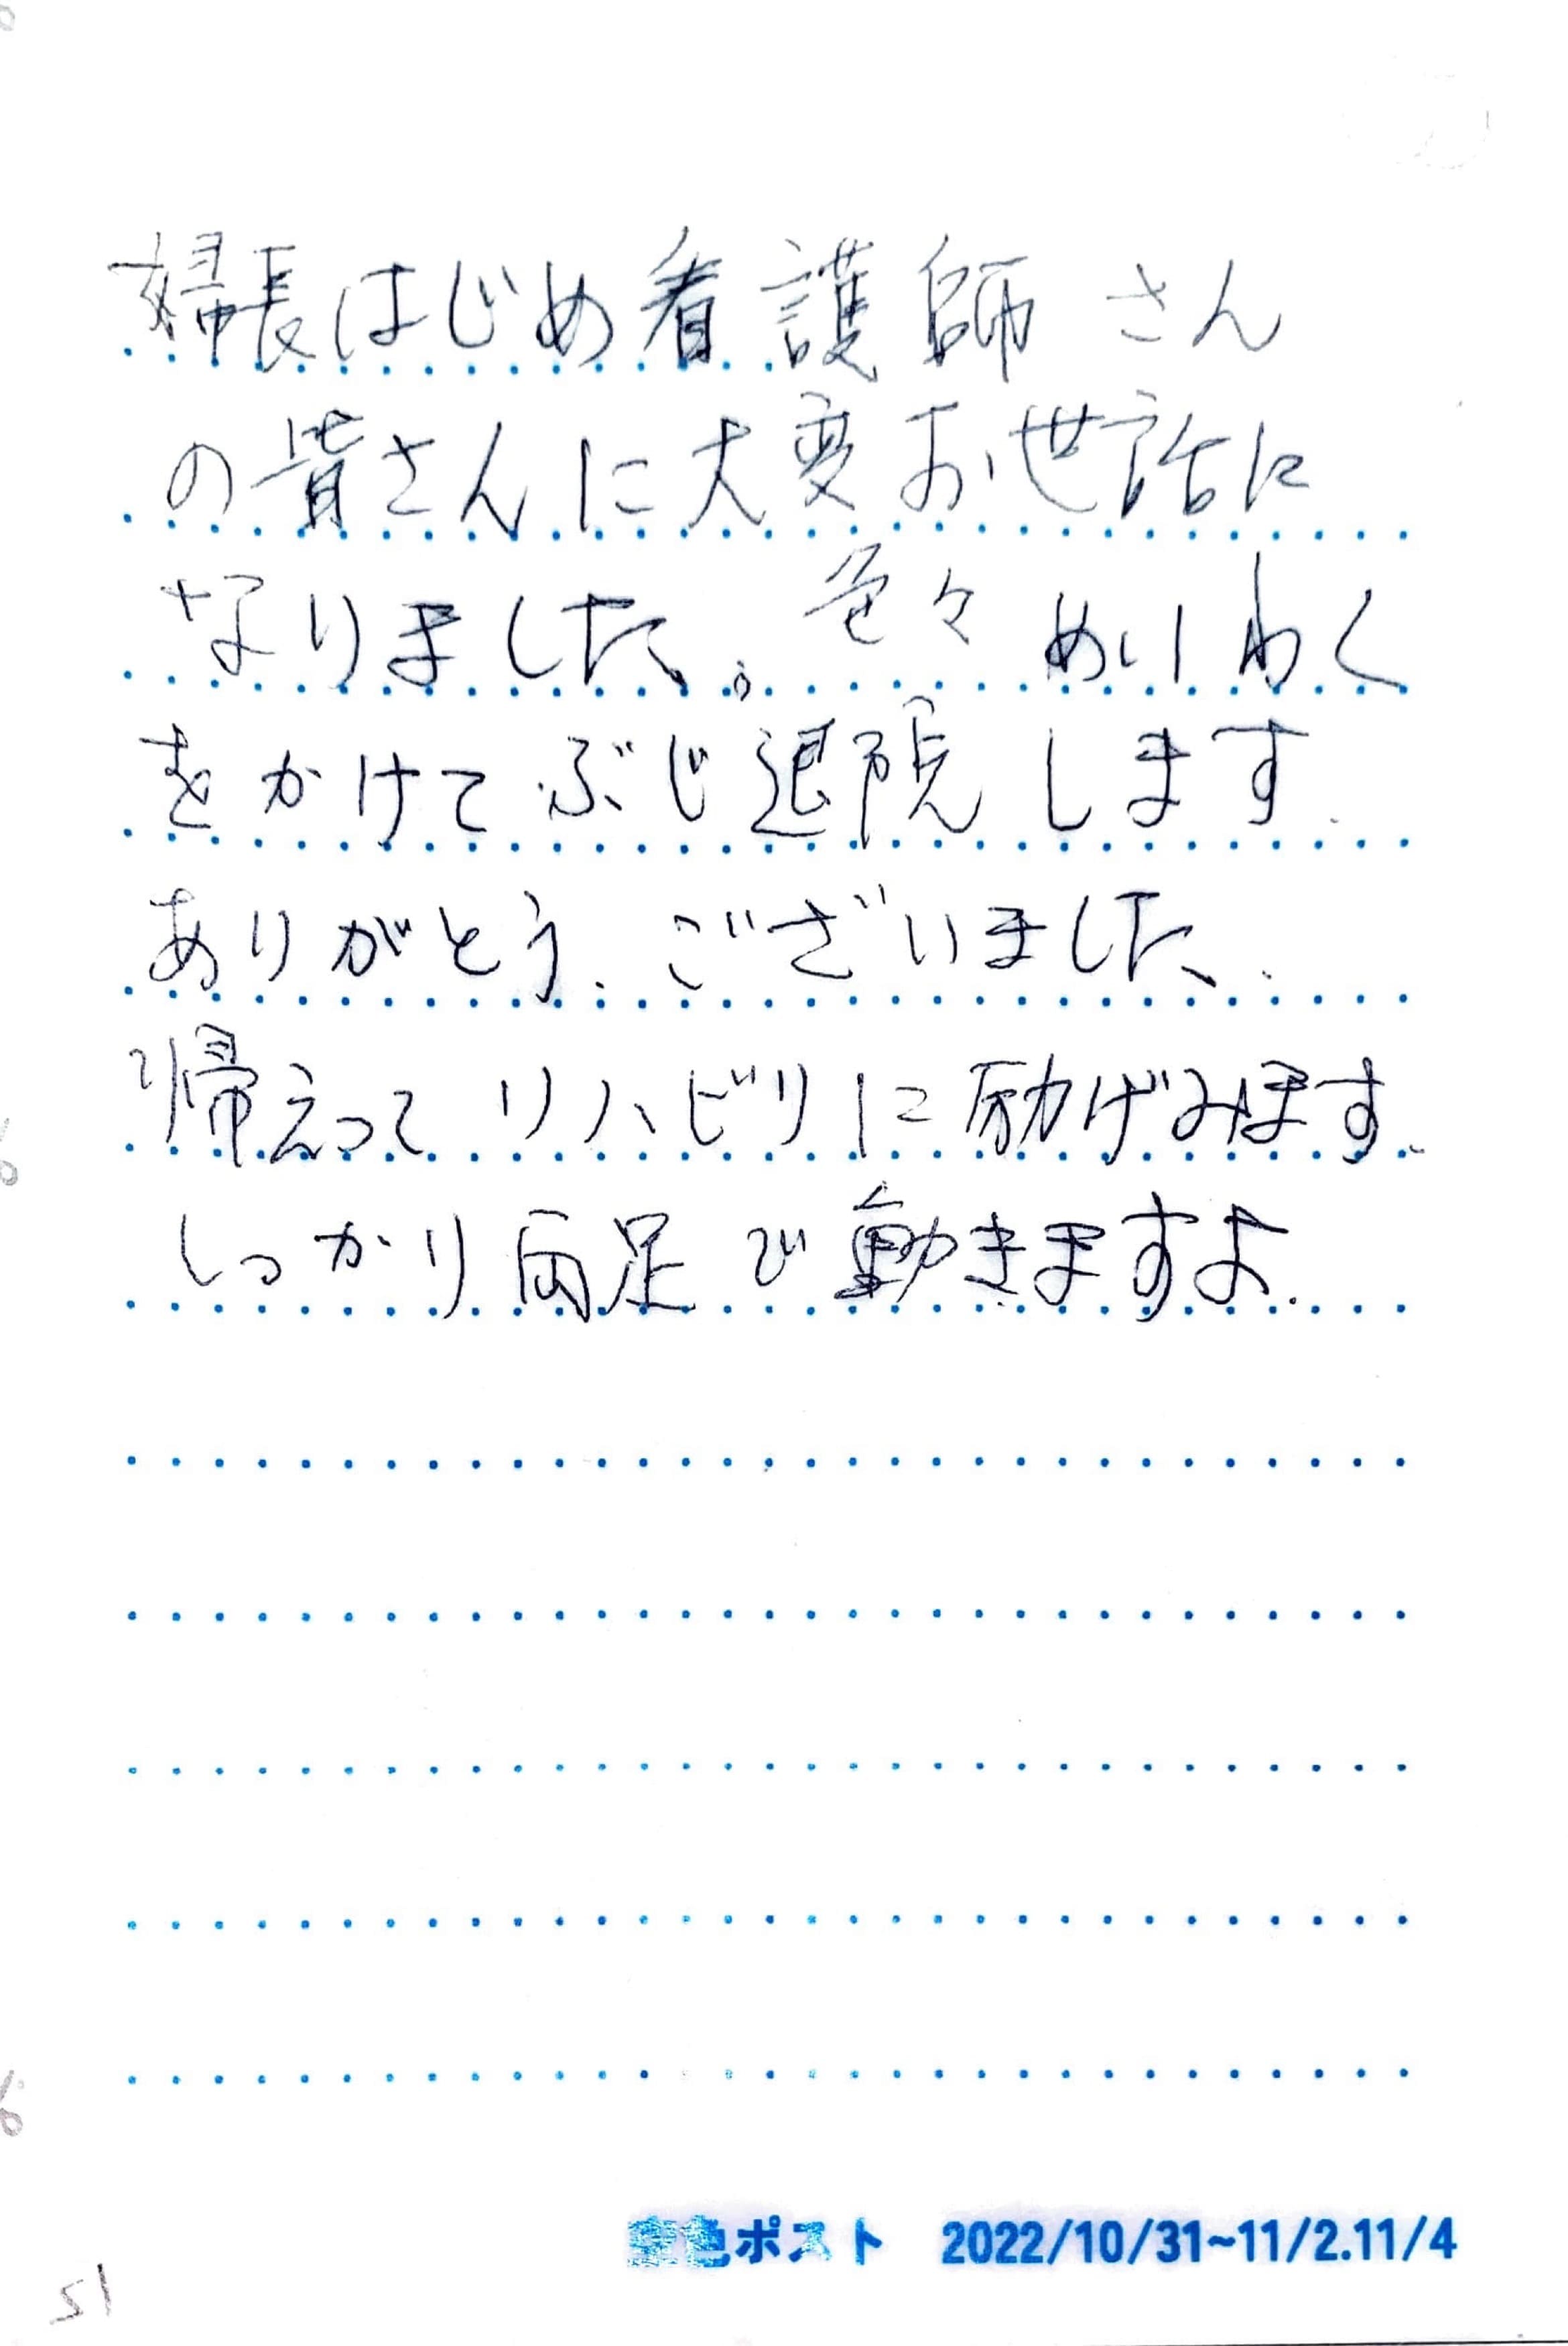 婦長はじめ看護師さん
の皆さんに大変お世話に
なりました。色々めいわく
をかけてぶじ退院します.
ありがとう.ございました.
帰えってリハビリに励げみます.
しっかり両足で動きますよ.
空色ポスト 2022/10/31~11/2.11/4